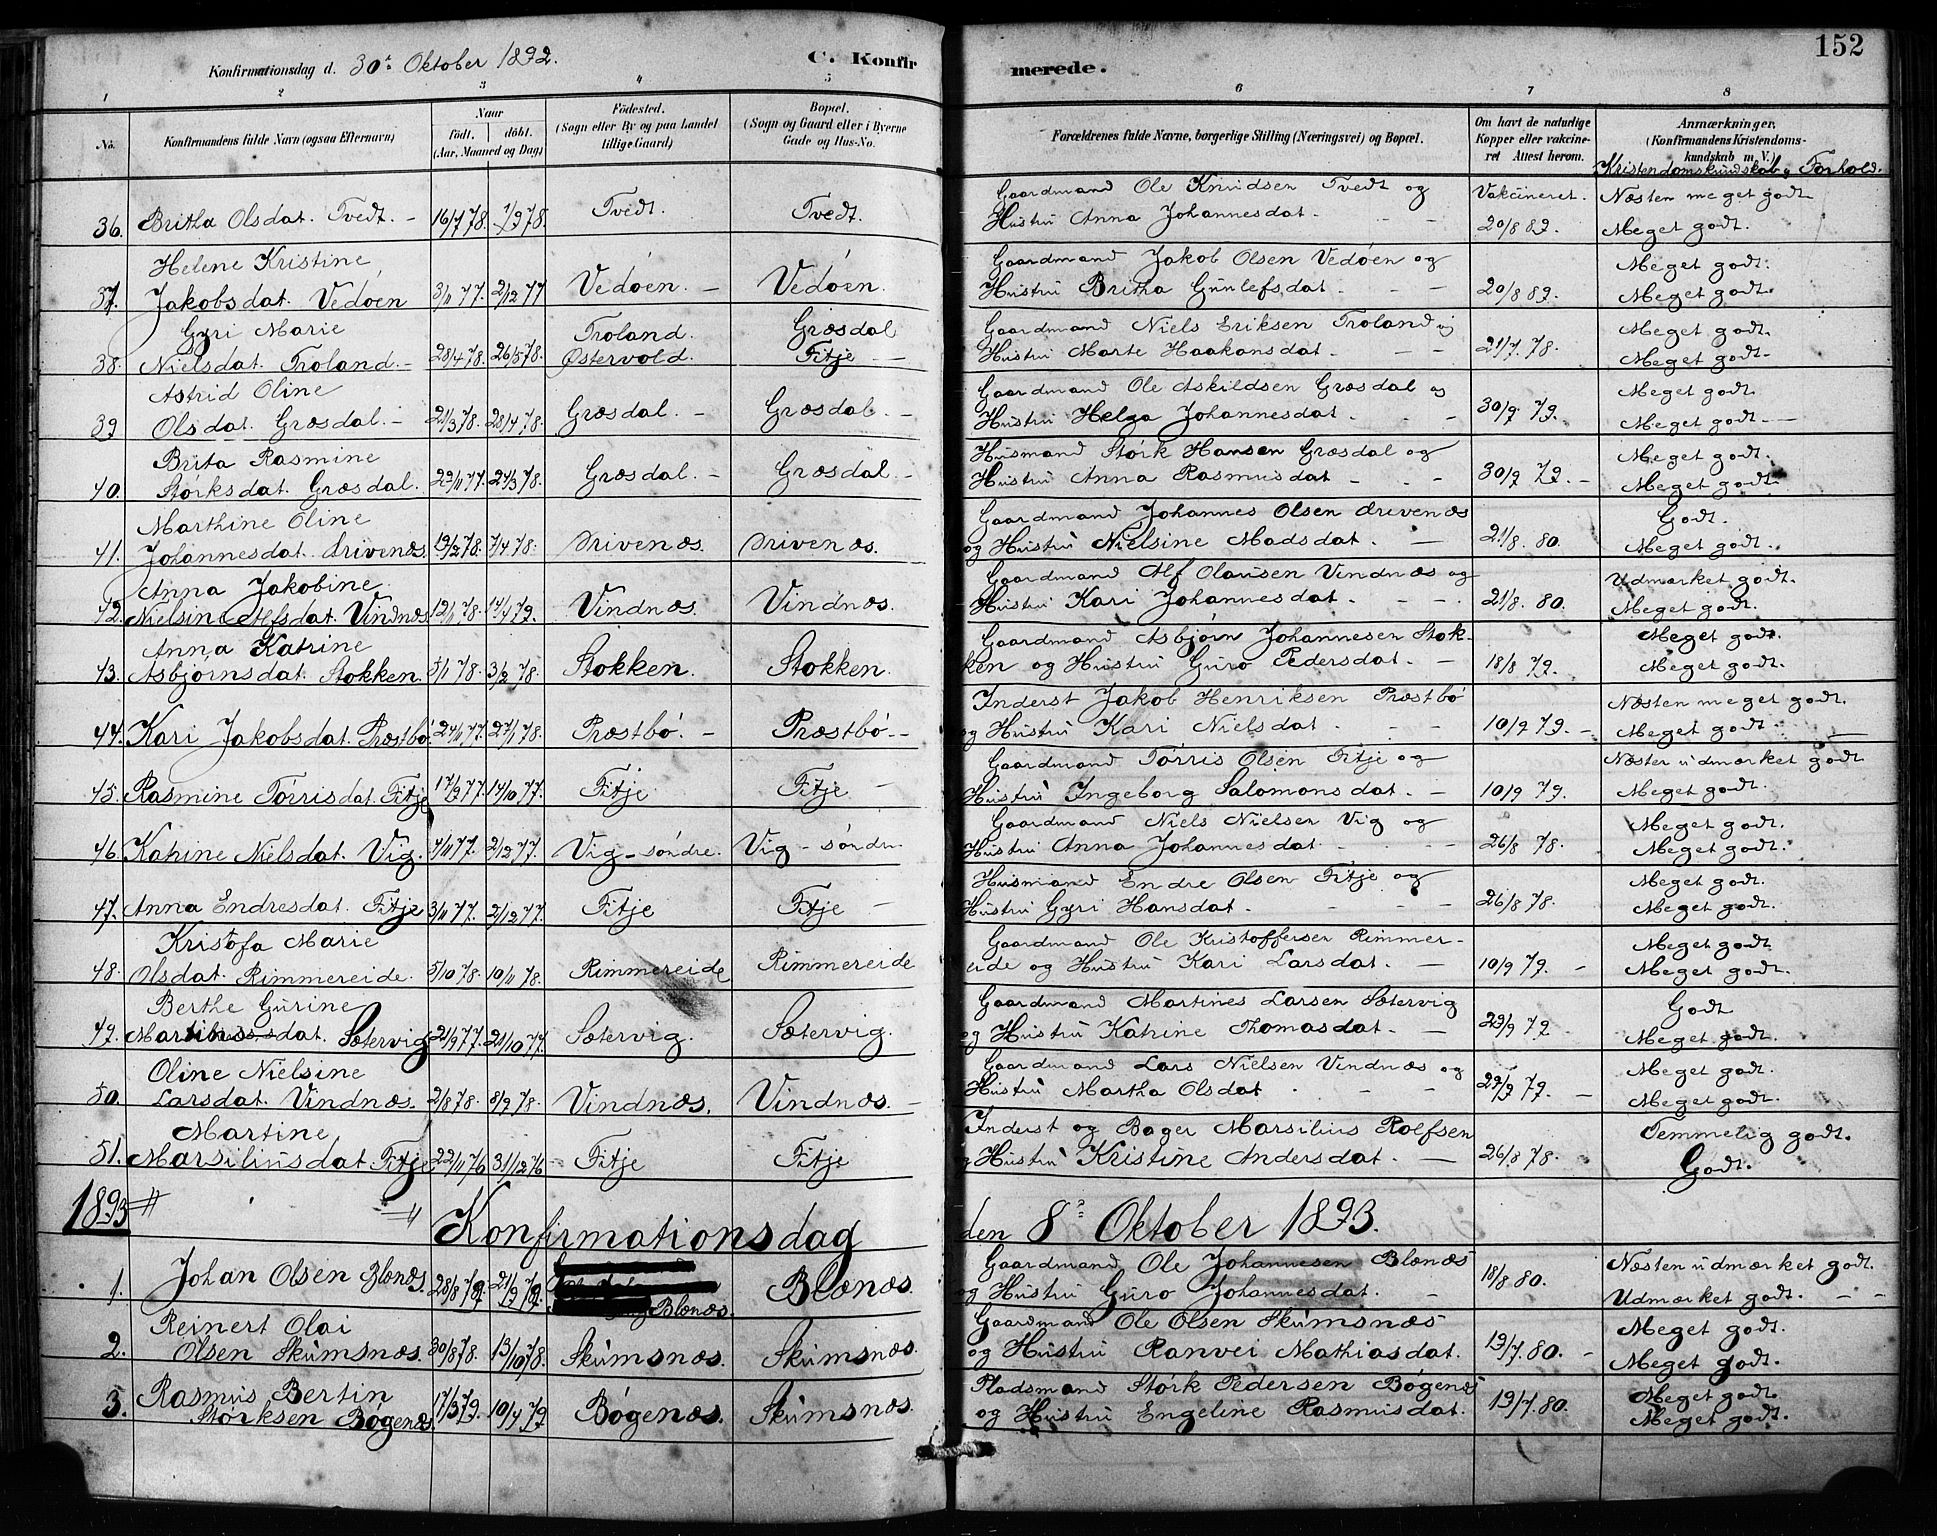 152
Konfirmationsdag d. 30te Oktober 1892.
C. Konfirmerede.
1 2 3 4 5 6 7 8
No. Konfirmandens fulde Navn (ogsaa Efternavn) Naar födt. döbt. (Aar, Maaned og Dag) Födested. (Sogn eller By og paa Landet tillige Gaard) Bopæl. (Sogn og Gaard eller i Byerne Gade og Hus-No. Forældrenes fulde Navne, borgerlige Stilling (Næringsvei) og Bopæl. Om havt de naturlige Kopper eller vakcineret Attest herom. Anmærkninger. (Konfirmandens Kristendomskundskab m. V.)
Kristendomskundskab, Forhold.
Gaardmand Ole Knudsen Tvedt og Vakcineret. Næsten meget godt
36. Britha Olsdat. Tvedt. 16/7 78. 1/9 78. Tvedt. Tvedt. Hustru Anna Johannesdat. 20/8 82. Meget godt.
Helene Kristine Gaardmand Jakob Olsen Vedøen og Meget godt.
37. Jakobsdat. Vedøen 3/11 77. 2/12 77 Vedøen. Vedøen. Hustru Britha Gunlefsdat. 20/8 82. Meget godt.
Gyri Marie Troland. Græsdal Gaardmand Niels Eriksen Troland og Meget godt.
38. Nielsdat. Troland. 28/4 78. 26/5 78. Østervold. Fitje Hustru Marte Haakansdat. 21/7. 78. Meget godt.
Astrid Oline Gaardmand Ole Askildsen Græsdal og Meget godt.
39 Olsdat. Græsdal. 21/3 78. 28/4 78. Græsdal. Græsdal. Hustru Helga Johannesdat. 30/9 79. Meget godt.
Brita Rasmine Husmand Størk Hansen Græsdal og Meget godt.
40. Størksdat. Græsdal. 22/11 77. 24/3 78. Græsdal. Græsdal. Hustru Anna Rasmusdat 30/9 79. Meget godt.
Marthine Oline Gaardmand Johannes Olsen Drevenæs Godt.
41. Johannesdat. Drivenæs. 19/2 78. 7/4 78. Drivenæs. Drivenæs. og Hustru Nielsine Madsdat. 21/8. 80. Meget godt.
Anna Jakobine Gaardmand Alf Olausen Vindnæs og Udmærket godt.
42. Nielsine Alfsdat. Vindnæs 12/11 78. 14/1 79. Vindnæs. Vindnæs. Hustru Kari Johannesdat. 21/8. 80. Meget godt.
Anna Katrine Gaardmand Asbjørn Johannesen Stok- Meget godt.
43. Asbjørnsdat. Stokken. 5/1 78. 3/2 78. Stokken. Stokken. ken og Hustru Guro Pedersdat. 18/8 79. Meget godt.
Inderst Jakob Henriksen Præstbø Næsten meget godt.
44. Kari Jakobsdat. Præstbø. 24/11 77. 27/1 78. Præstbø. Præstbø. og Hustru Kari Nielsdat. 10/9 79. Meget godt.
Gaardmand Tørris Olsen Fitje og Næsten udmærket godt
45. Rasmine Tørrisdat. Fitje 17/9 77. 14/10 77. Fitje. Fitje Hustru Ingeborg Salomonsdat. 10/9 79. Meget godt.
Gaardmand Niels Nielsen Vig og Meget godt.
46. Katrine Nielsdat. Vig. 4/11 77. 2/12 77. Vig - søndre. Vig - søndre Hustru Anna Johannesdat. 26/8 78. Meget godt.
Husmand Endre Olsen Fitje og Meget godt.
47. Anna Endresdat. Fitje 3/11 77. 2/12 77. Fitje Fitje Hustru Gyri Hansdat. 26/8 78. Meget godt.
Kristofa Marie Gaardmand Ole Kristoffersen Rimmer- Meget godt.
48. Olsdat. Rimmereide. 5/10 78. 10/11 78. Rimmereide Rimmereide eide og Hustru Kari Larsdat. 10/9 79. Meget godt.
Berthe Gurine Gaardmand Martines Larsen Sætervig Godt
49. Martinesdat. Sætervig 21/9 77. 21/10 77. Sætervig. Sætervig. og Hustru Katrine Thomasdat. 29/9 79. Meget godt.
Oline Nielsine Gaardmand Lars Nielsen Vindnæs og Meget godt.
50. Larsdat. Vindnæs. 2/8 78. 8/9 78. Vindnæs. Vindnæs. Hustru Martha Olsdat 29/9 79. Meget godt.
Martine Inderst og Bager Marsilius Rolfsen Temmelig godt.
51. Marsiliusdat Fitje 22/11 76 31/12 76 Fitje Fitje og Hustru Kristine Andersdat. 26/8 78. Godt.
1893 Konfirmationsdag den 8de Oktober 1893.
Gaardmand Ole Johannesen Blænæs Næsten udmærket godt.
1. Johan Olsen Blænæs. 28/8 79. 21/9 79. Blænæs. Blænæs. og Hustru Guro Johannesdat. 18/8 80. Udmærket godt.
Reinert Olai Gaardmand Ole Olsen Skumsnæs Meget godt.
2. Olsen Skumsnæs. 30/8 78. 13/10 78. Skumsnæs. Skumsnæs. og Hustru Ranvei Mathiasdat. 19/7. 80. Meget godt.
Rasmus Bertin Pladsmand Størk Pedersen Bøgenæs Meget godt.
3. Størksen Bøgenæs. 17/3 79. 10/4 79 Bøgenæs. Skumsnæs. og Hustru Engeline Rasmusdat. 19/7. 80. Meget godt.